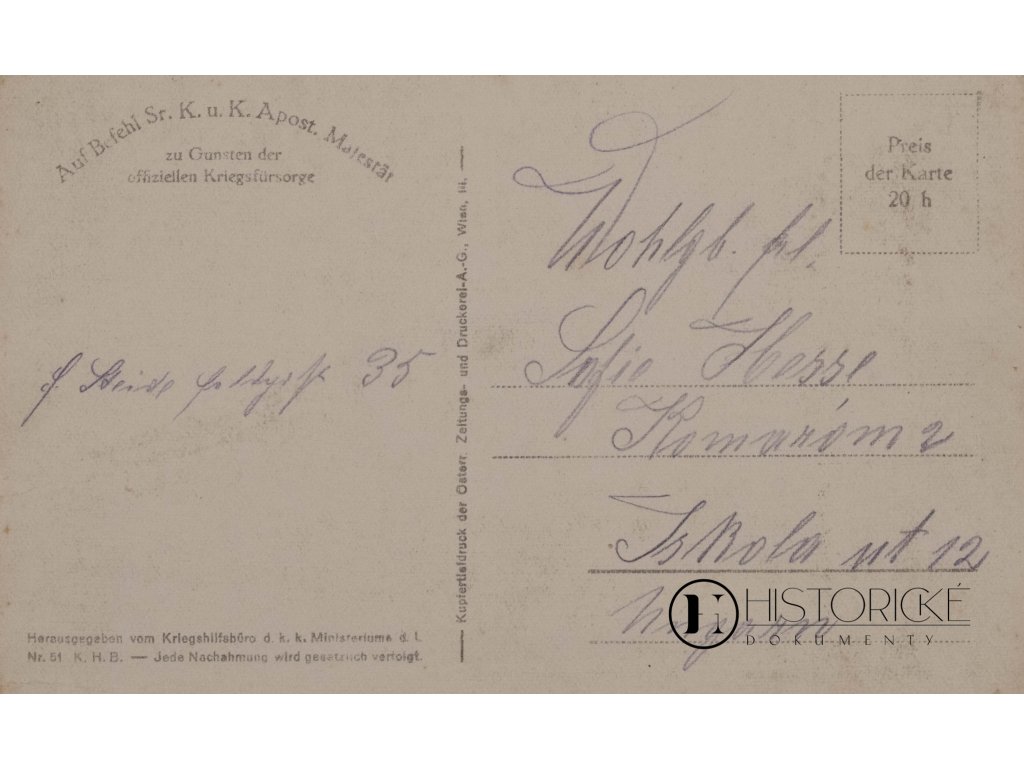 Auf Befehl Sr. K. u. K. Apost. Majestät
zu Gunsten der
offiziellen Kriegsfürsorge
Preis
der Karte
20 h
Wohlgb. frl.
Sofie Hesse
Komaróm 2
Iskola ut 12
Ungarn
feldpost 35
Kupfertiefdruck der Österr. Zeitungs- und Druckerei-A.-G., Wien, III.
Herausgegeben vom Kriegshilfsbüro d. k. k. Ministeriums d. I.
Nr. 51 K. H. B. — Jede Nachahmung wird gesetzlich verfolgt.
HISTORICKÉ
DOKUMENTY